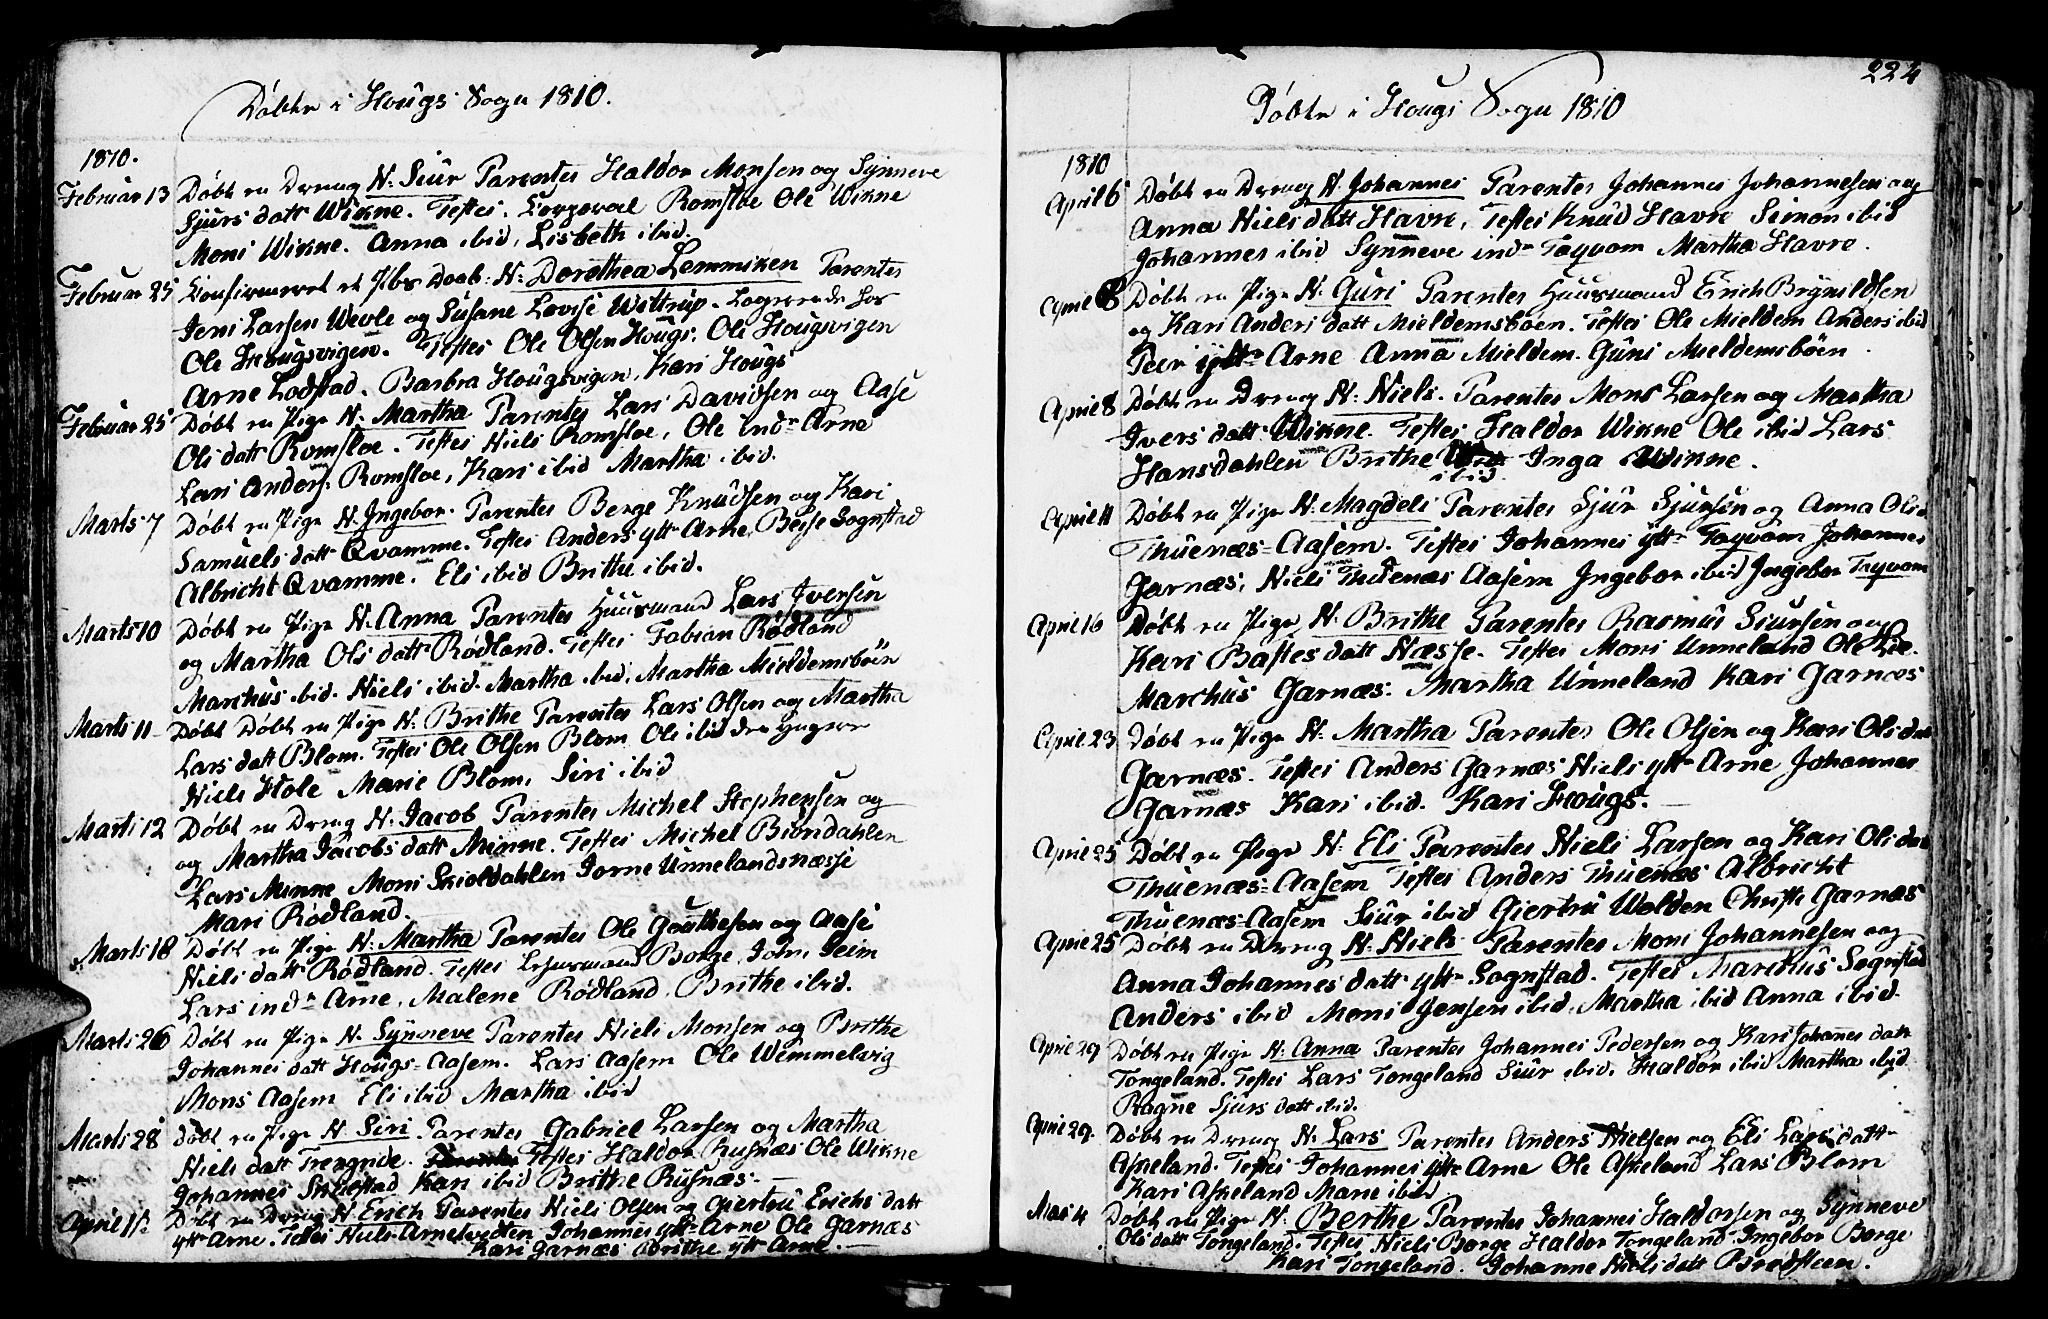 Døbte i Hougs Sogn 1810.
1810.
Februar 13 Døbt en Dreng N: Siur Parentes Haldor Monsen og Synneve
Sjurs datt Wikne. Testes. Corporal Romsloe Ole Wikne
Moni Wikne. Anna ibid, Lisbeth ibid.
Februar 25 Confirmeret et Pbr Daab. N: Dorothea Lemmiken Parentes
Jens Larsen Wevle og Susane Lovise Wittrup. Logerende hos
Ole Hougsvigen. Testes Ole Olsen Hougs. Ole Hougsvigen
Arne Lodstad. Barbra Hougsvigen, Kari Hougs
Februar 25 Døbt en Pige N. Martha Parentes Lars Davidsen og Aase
Ols datt Romsloe. Testes Niels Romsloe, Ole indr Arne
Lars Anders: Romsloe, Kari ibid Martha ibid.
Marts 7 Døbt en Pige N. Ingebor. Parentes Berge Knudsen og Kari
Samuels datt Qvamme. Testes Anders yttr Arne, Beise Sognstad
Albricht Qvamme. Eli ibid Brithe ibid.
Marts 10 Døbt en Pige N. Anna Parentes Huusmand Lars Iversen
og Martha Ols datt Rødland. Testes Fabian Rødland
Marchus ibid. Niels ibid. Martha ibid, Martha Mieldemsbøen
Marts 11 Døbt Døbt en Pige N. Brithe Parentes Lars Olsen og Martha
Lars datt Blom. Testes Ole Olsen Blom Ole ibid den yngere
Niels Hole Marie Blom, Siri ibid
Marts 12 Døbt en Dreng N. Jacob Parentes Michel Stephensen og
og Martha Jacobs datt Minne. Testes Michel Biørndahlen
Lars Minne Moni Skioldahlen Jorne Unnelandsnæsse
Mari Rødland.
Marts 18 Døbt en Pige N: Martha Parentes Ole Gouthesen og Aase
Niels datt Rødland. Testes Lehnsmand Borge, John Seim
Lars indr Arne, Malene Rødland. Brithe ibid.
Marts 26 Døbt en Pige N. Synneve Parentes Niels Monsen og Brithe
Johannes datt Hougs-Aasem. Lars Aasem Ole Wemmelvig
Mons Aasem Eli ibid Martha ibid
Marts 28 Døbt en Pige N Siri Parentes Gabriel Larsen og Martha
Niels datt Trengride. Testes Haldor Rusnæs Ole Wikne
Johannes Skulstad Kari ibid Brithe Rusnæs.
April 1 Døbt en Dreng N. Erich Parentes Niels Olsen og Giertru Erichs datt
yttr Arne. Testes Niels Arnetvedten Johannes yttr Arne Ole Garnæs
Kari Garnæs Brithe yttr Arne.
224
Døbte i Hougs Sogn 1810
1810
April 6 Døbt en Dreng N. Johannes Parentes Johannes Johannesen og
Anna Niels datt Havre, Testes Knud Havre Simon ibid
Johannes ibid Synneve indr Tøqvam Martha Havre.
April 8 Døbt en Pige N. Guri Parentes Huusmand Erich Brynildsen
og Kari Anders datt Mieldemsbøen. Testes Ole Mieldem Anders ibid
Peer yttr Arne Anna Mieldem. Guni Mieldemsbøen
April 8 Døbt en Dreng N: Niels. Parentes Mons Larsen og Martha
Ivers datt Wikne. Testes Haldor Wikne Ole ibid Lars
Hansdahlen Brithe ibid. Inga Wikne.
April 11 Døbt en Pige N: Magdeli Parentes Sjur Sjursen og Anna Ols
Thuenæs-Aasem. Testes Johannes yttr Tøqvam Johannes
Garnæs, Niels Thuenæs Aasem Ingebor ibid Ingebor Tøqvam
April 16 Døbt en Pige N. Brithe Parentes Rasmus Siursen og
Kari Bastes datt Næsse. Testes Moni Unneland Ole Lie.
Marchus Garnæs. Martha Unneland Kari Garnæs
April 23 Døbt en Pige N. Martha Parentes Ole Olsen og Kari Ols datt
Garnæs. Testes Anders Garnæs Niels yttr Arne Johannes
Garnæs Kari ibid. Kari Hougs.
April 25 Døbt en Pige N. Eli Parentes Niels Larsen og Kari Ols datt
Thuenæs-Aasem Testes Anders Thuenæs Albricht
Thuenæs-Aasem Siur ibid Giertru Wolden Christi Garnæs
April 25 Døbt en Dreng N. Niels Parentes Moni Johannesen og
Anna Johannes datt yttr Sognstad. Testes Marchus Sognstad
Anders ibid Moni Jensen ibid, Martha ibid Anna ibid.
April 29 Døbt en Pige N: Anna Parentes Johannes Pedersen og Kari Johannes datt
Tongeland. Testes Lars Tongeland Siur ibid, Haldor ibid Martha ibid
Ragne Sjurs datt ibid.
April 29. Døbt en Dreng N. Lars Parentes Anders Nielsen og Eli Lars datt
Askeland. Testes Johannes yttr Arne Ole Askeland Lars Blom
Kari Askeland Marie ibid
Mai 4 Døbt en Pige N: Berthe Parentes Johannes Haldorsen og Synneve
Ols datt Tongeland. Testes Niels Borge Haldor Tongeland Ingebor Borge
Kari Tongeland. Johanne Niels datt Brødsteen.